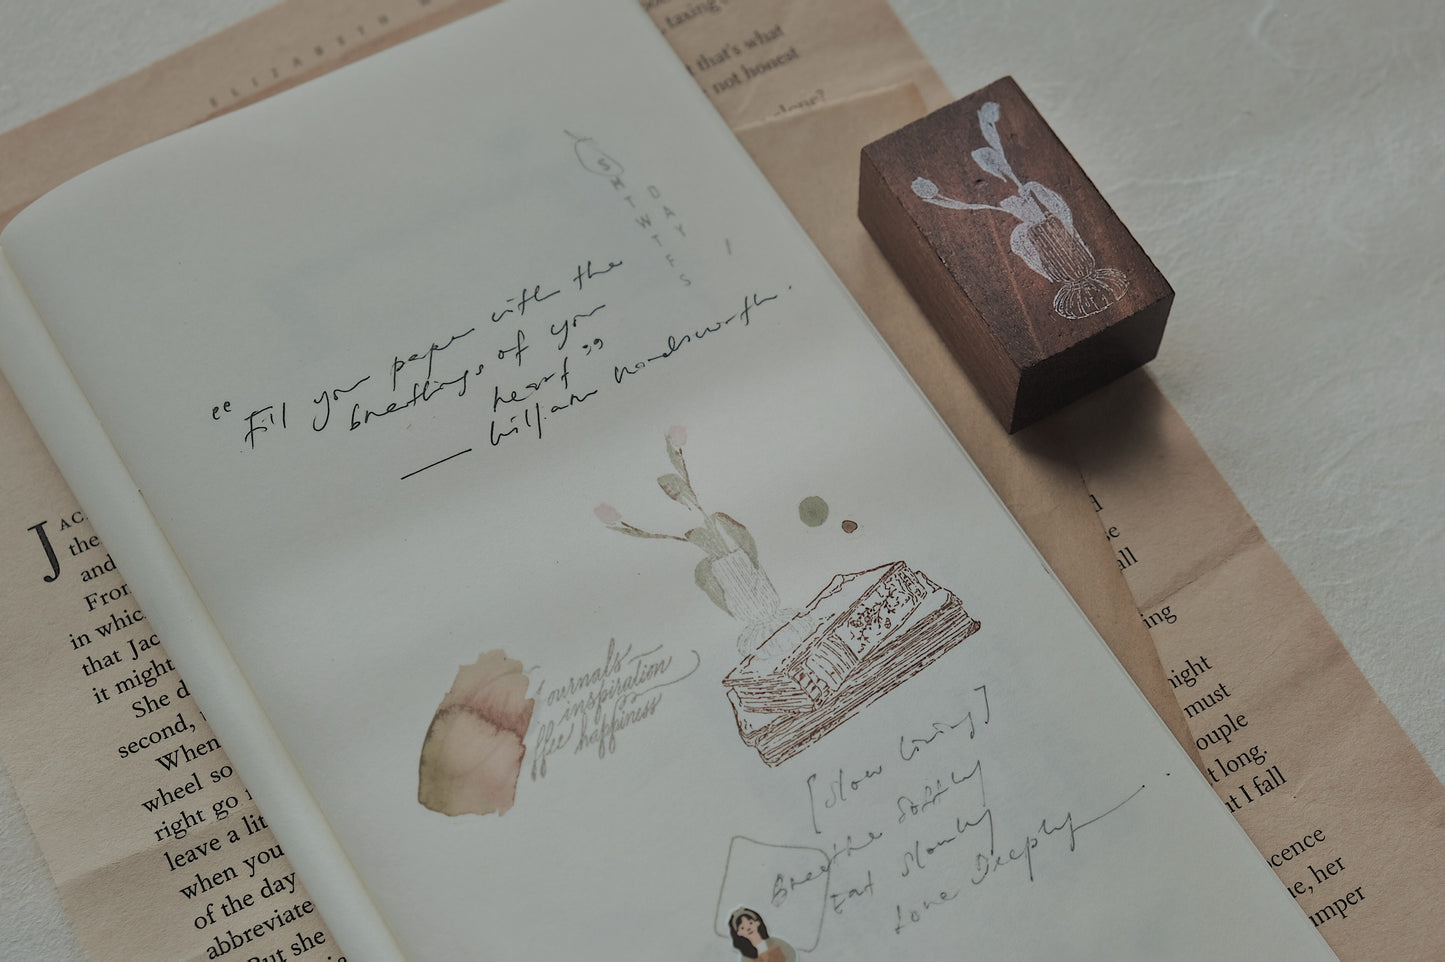 ELIZABETH
"Fill your paper with the
breathings of your
heart"
— William Wordsworth.
S M T W T F S
DAY
Journals
inspiration
ffee happiness
[Slow living]
Breathe softly
Eat slowly
Love Deeply
JAC
the
and
From
in whic
that Jac
it might
She d
second,
When
wheel so
right go
leave a lit
when you
of the day
abbreviate
But she
taxing
that's what
not honest
done?
all
ing
night
must
ouple
t long.
t I fall
ocence
e, her
umper